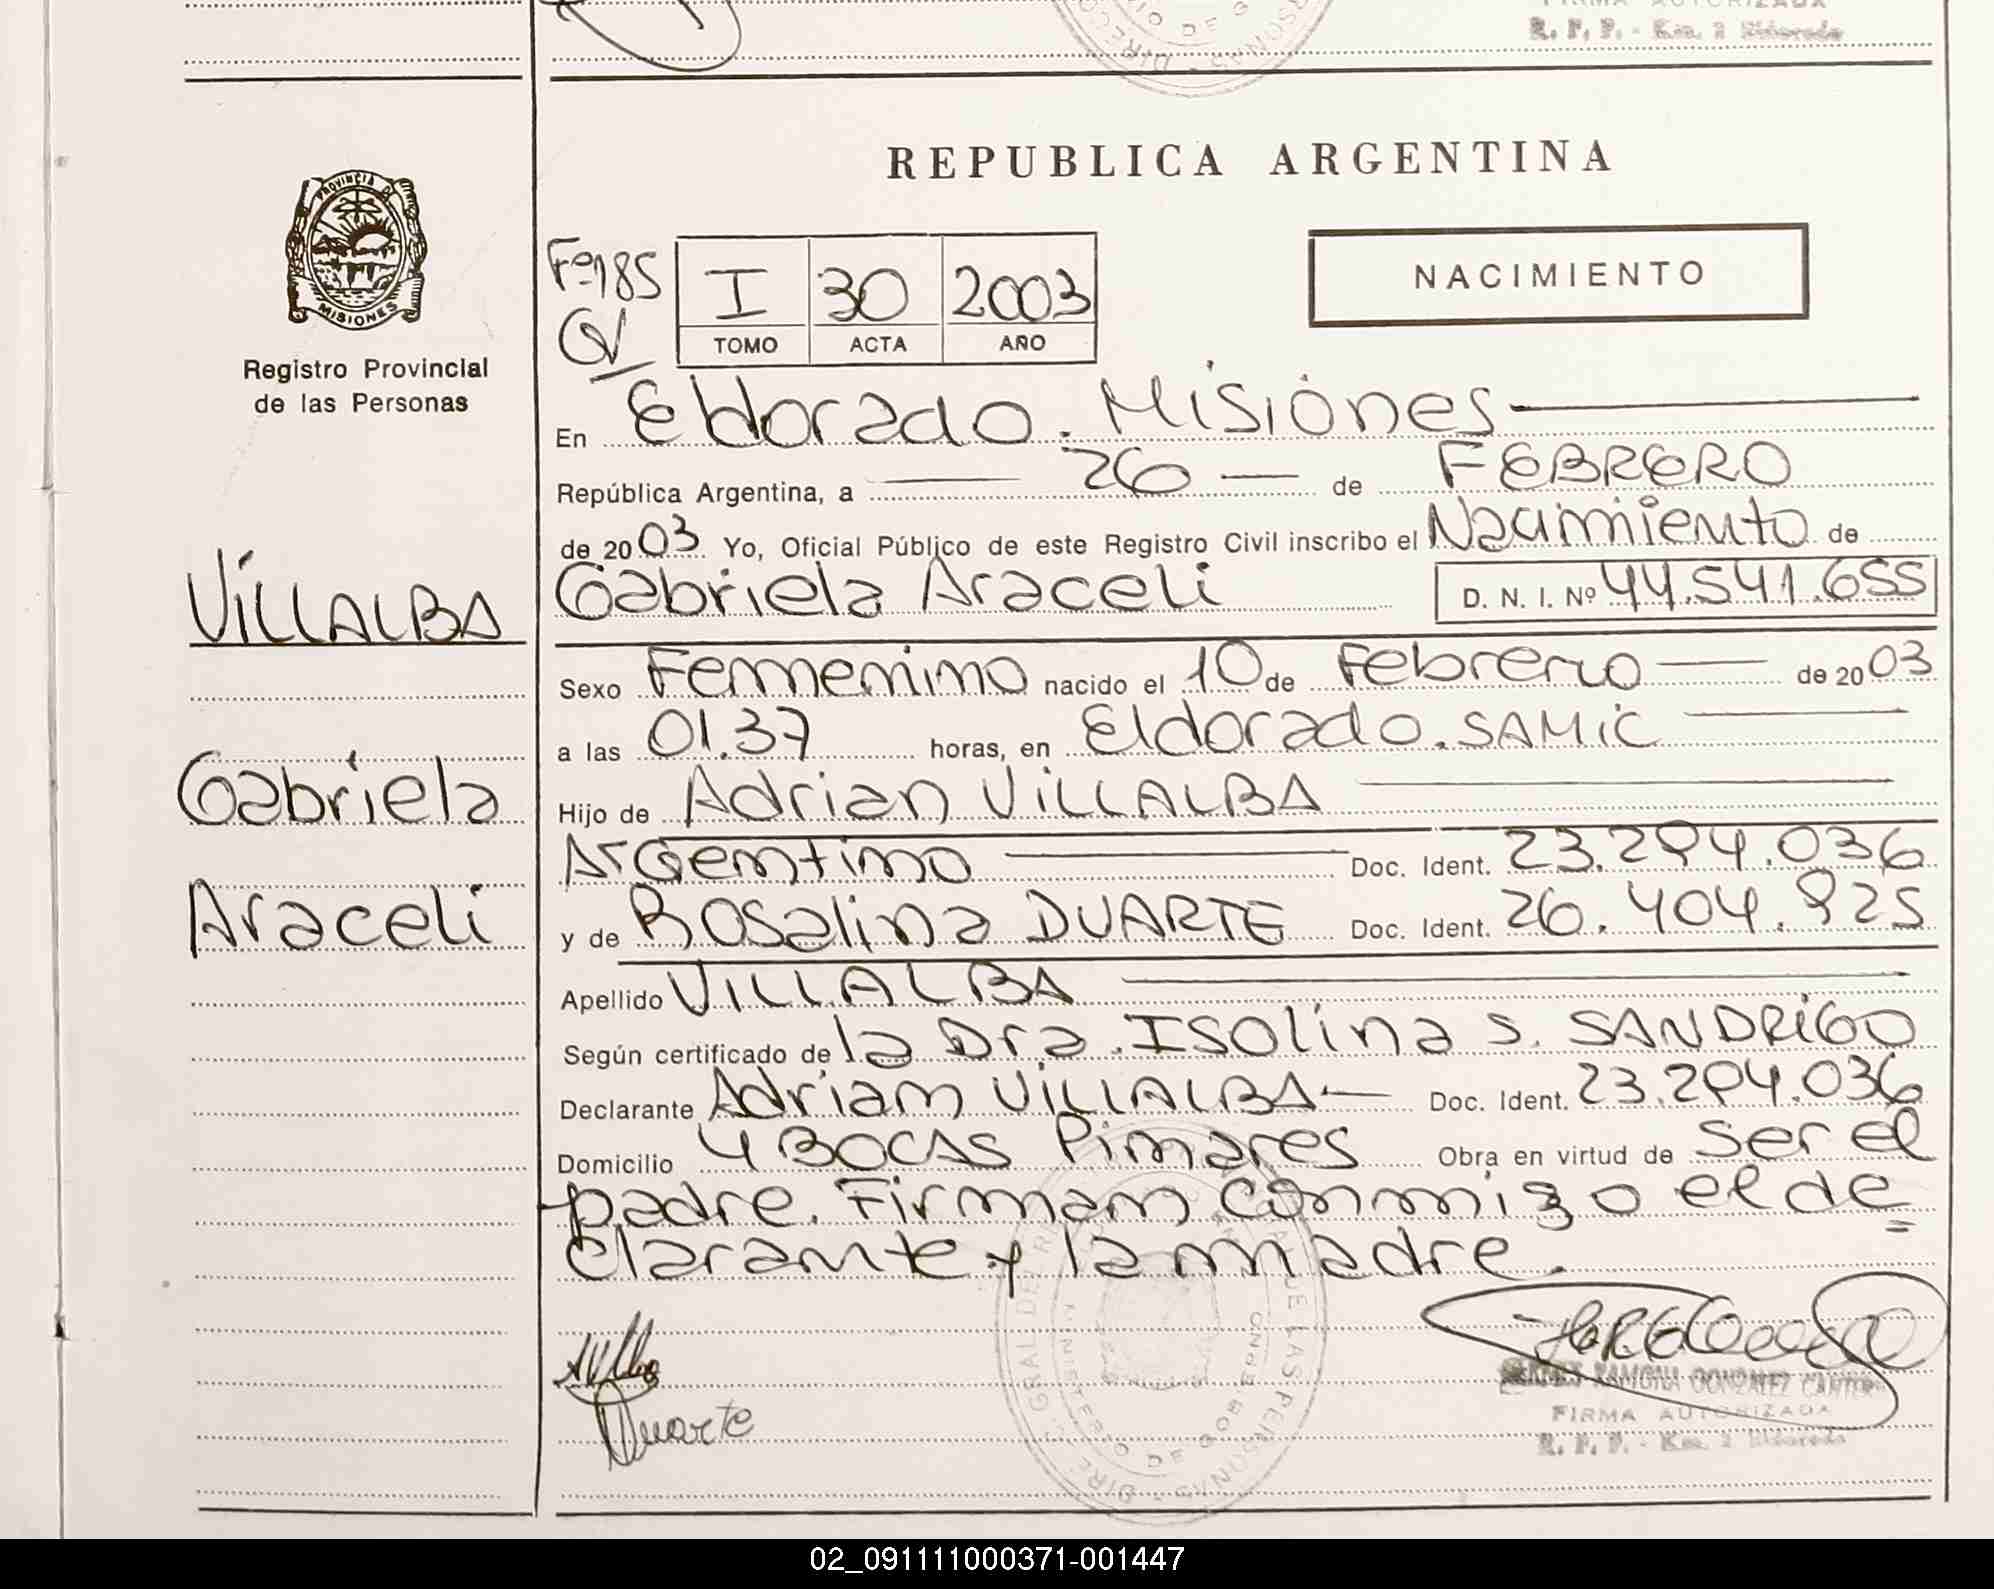 R. P. P. - Km. 2 Eldorado
REPUBLICA ARGENTINA
PROVINCIA DE
MISIONES
Registro Provincial
de las Personas
VILLALBA
Gabriela
Araceli
Fº185
I 30 2003
TOMO ACTA AÑO
NACIMIENTO
En Eldorado. Misiones
República Argentina, a 26 de FEBRERO
de 2003 Yo, Oficial Público de este Registro Civil inscribo el Nacimiento de
Gabriela Araceli D. N. I. Nº 44.541.655
Sexo Femenino nacido el 10 de Febrero de 2003
a las 01.37 horas, en Eldorado. SAMIC
Hijo de Adrian VILLALBA
Argentino Doc. Ident. 23.294.036
y de Rosalina DUARTE Doc. Ident. 26.404.825
Apellido VILLALBA
Según certificado de la Dra. Isolina S. SANDRIGO
Declarante Adrian VILLALBA Doc. Ident. 23.294.036
Domicilio 4 BOCAS Pinares Obra en virtud de ser el
padre. Firman conmigo el de
clarante y la madre.
Duarte
RAMONA GONZALEZ
FIRMA AUTORIZADA
R. P. P. - Km. 2 Eldorado
02_091111000371-001447